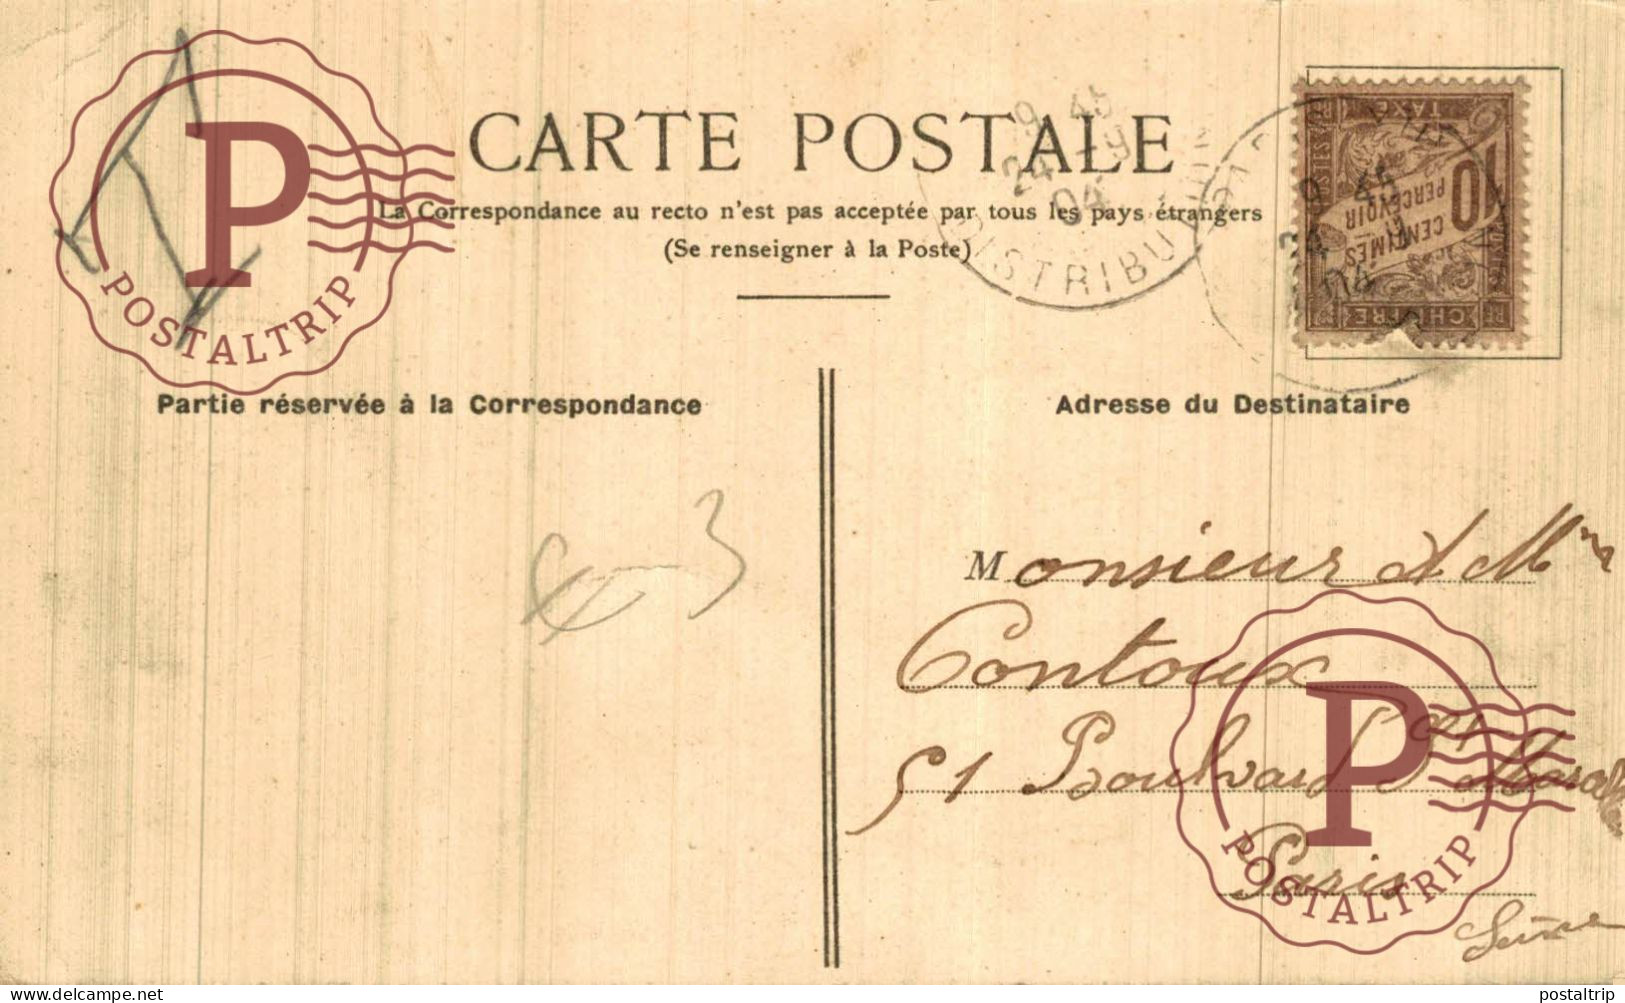 CARTE POSTALE
La Correspondance au recto n'est pas acceptée par tous les pays étrangers
(Se renseigner à la Poste)
9 45
24 -9
04
DISTRIBU
TAXE
A PERCEVOIR
10 CENTIMES
CHIFFRE
POSTALTRIP
Partie réservée à la Correspondance
Adresse du Destinataire
3
Monsieur et Mme
Contoux
51 Boulevard St Marcel
Paris
Seine
POSTALTRIP
Delcampe.net
postaltrip